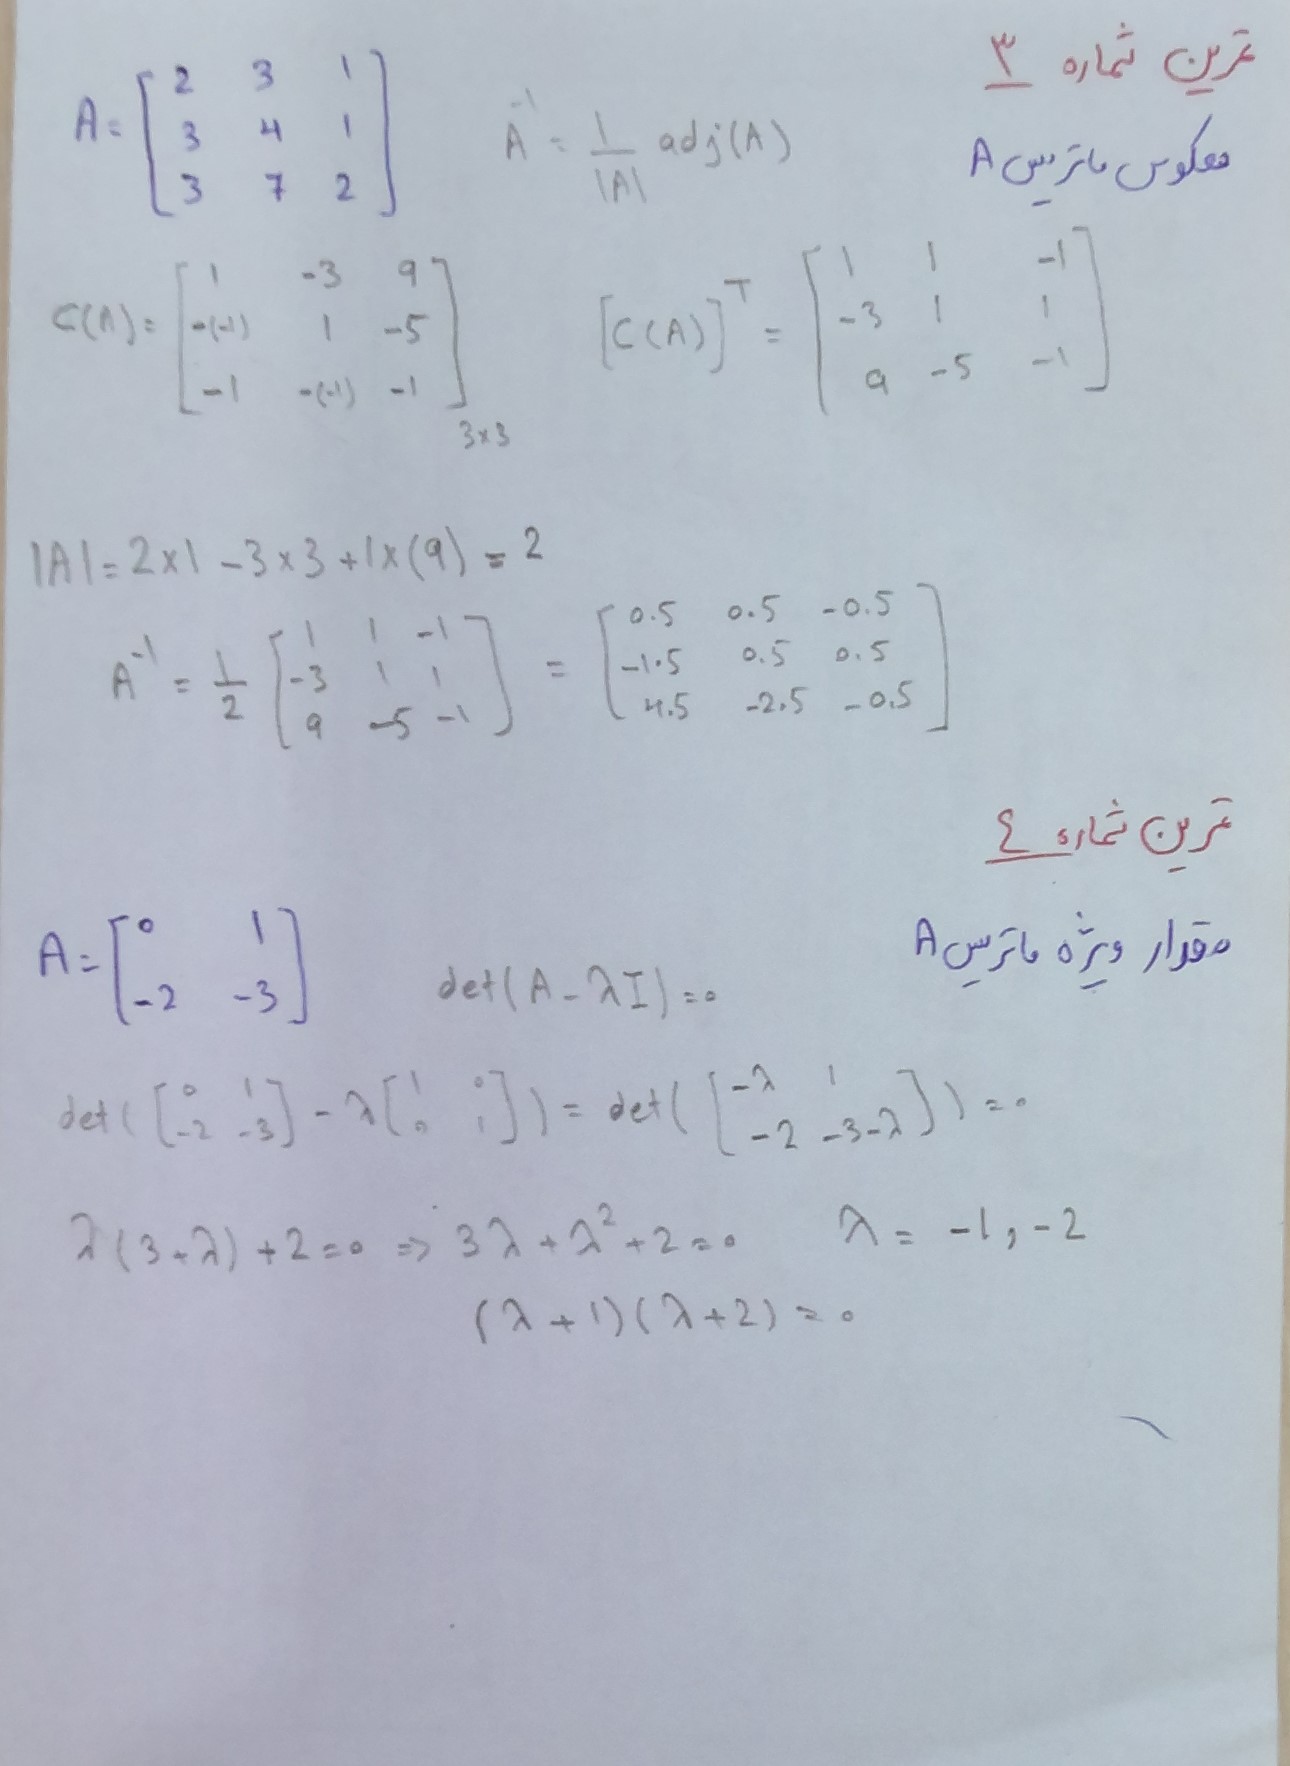 تمرین شماره ۳
معکوس ماتریس A
A = [2 3 1; 3 4 1; 3 7 2] A⁻¹ = 1/|A| adj(A)
C(A) = [1 -3 9; -(-1) 1 -5; -1 -(-1) -1] 3×3 [C(A)]ᵀ = [1 1 -1; -3 1 1; 9 -5 -1]
|A| = 2×1 -3×3 +1×(9) = 2
A⁻¹ = 1/2 [1 1 -1; -3 1 1; 9 -5 -1] = [0.5 0.5 -0.5; -1.5 0.5 0.5; 4.5 -2.5 -0.5]
تمرین شماره ٤
مقدار ویژه ماتریس A
A = [0 1; -2 -3] det(A - λI) = 0
det([0 1; -2 -3] - λ[1 0; 0 1]) = det([-λ 1; -2 -3-λ]) = 0
λ(3+λ) + 2 = 0 ⇒ 3λ + λ² + 2 = 0 λ = -1, -2
(λ + 1)(λ + 2) = 0